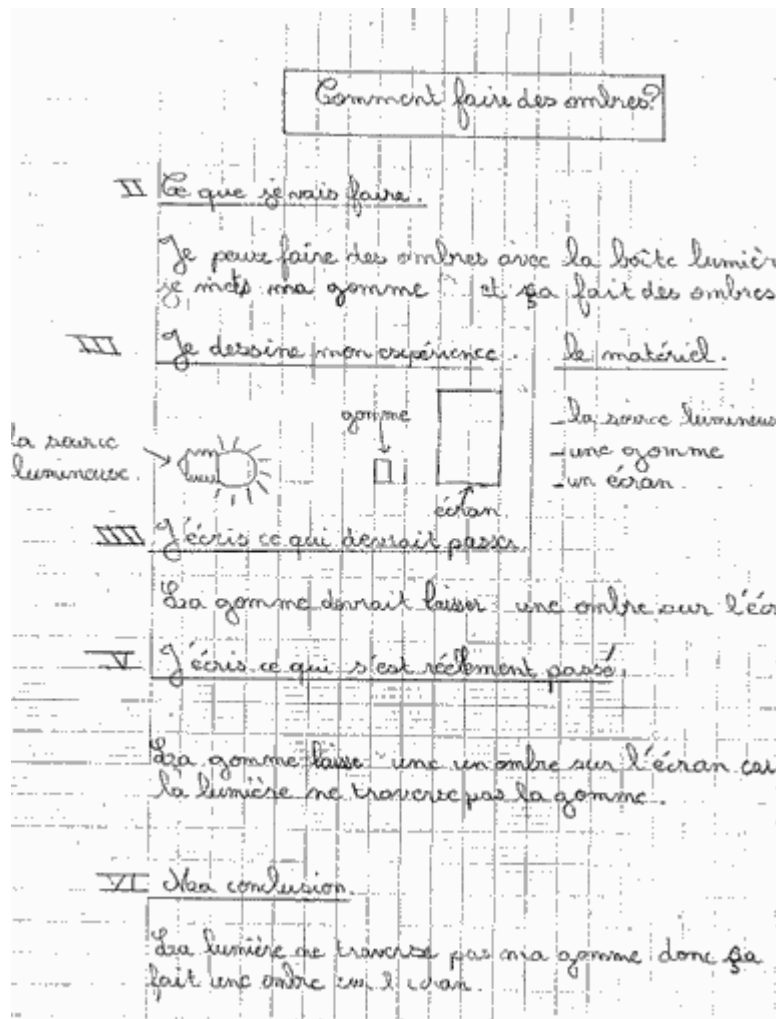 Comment faire des ombres?
II Ce que je vais faire.
Je peux faire des ombres avec la boîte lumièr
je mets ma gomme et ça fait des ombres
III Je dessine mon expérience. le matériel.
gomme
la source lumineuse.
écran
-la source lumineus
-une gomme
-un écran
IIII J'écris ce qui devrait passer
La gomme devrait laisser une ombre sur l'écr
V J'écris ce qui s'est réelment passé.
La gomme laisse une un ombre sur l'écran car
la lumière ne traverse pas la gomme.
VI Ma conclusion.
La lumière ne traverse pas ma gomme donc ça
fait une ombre sur l'écran.